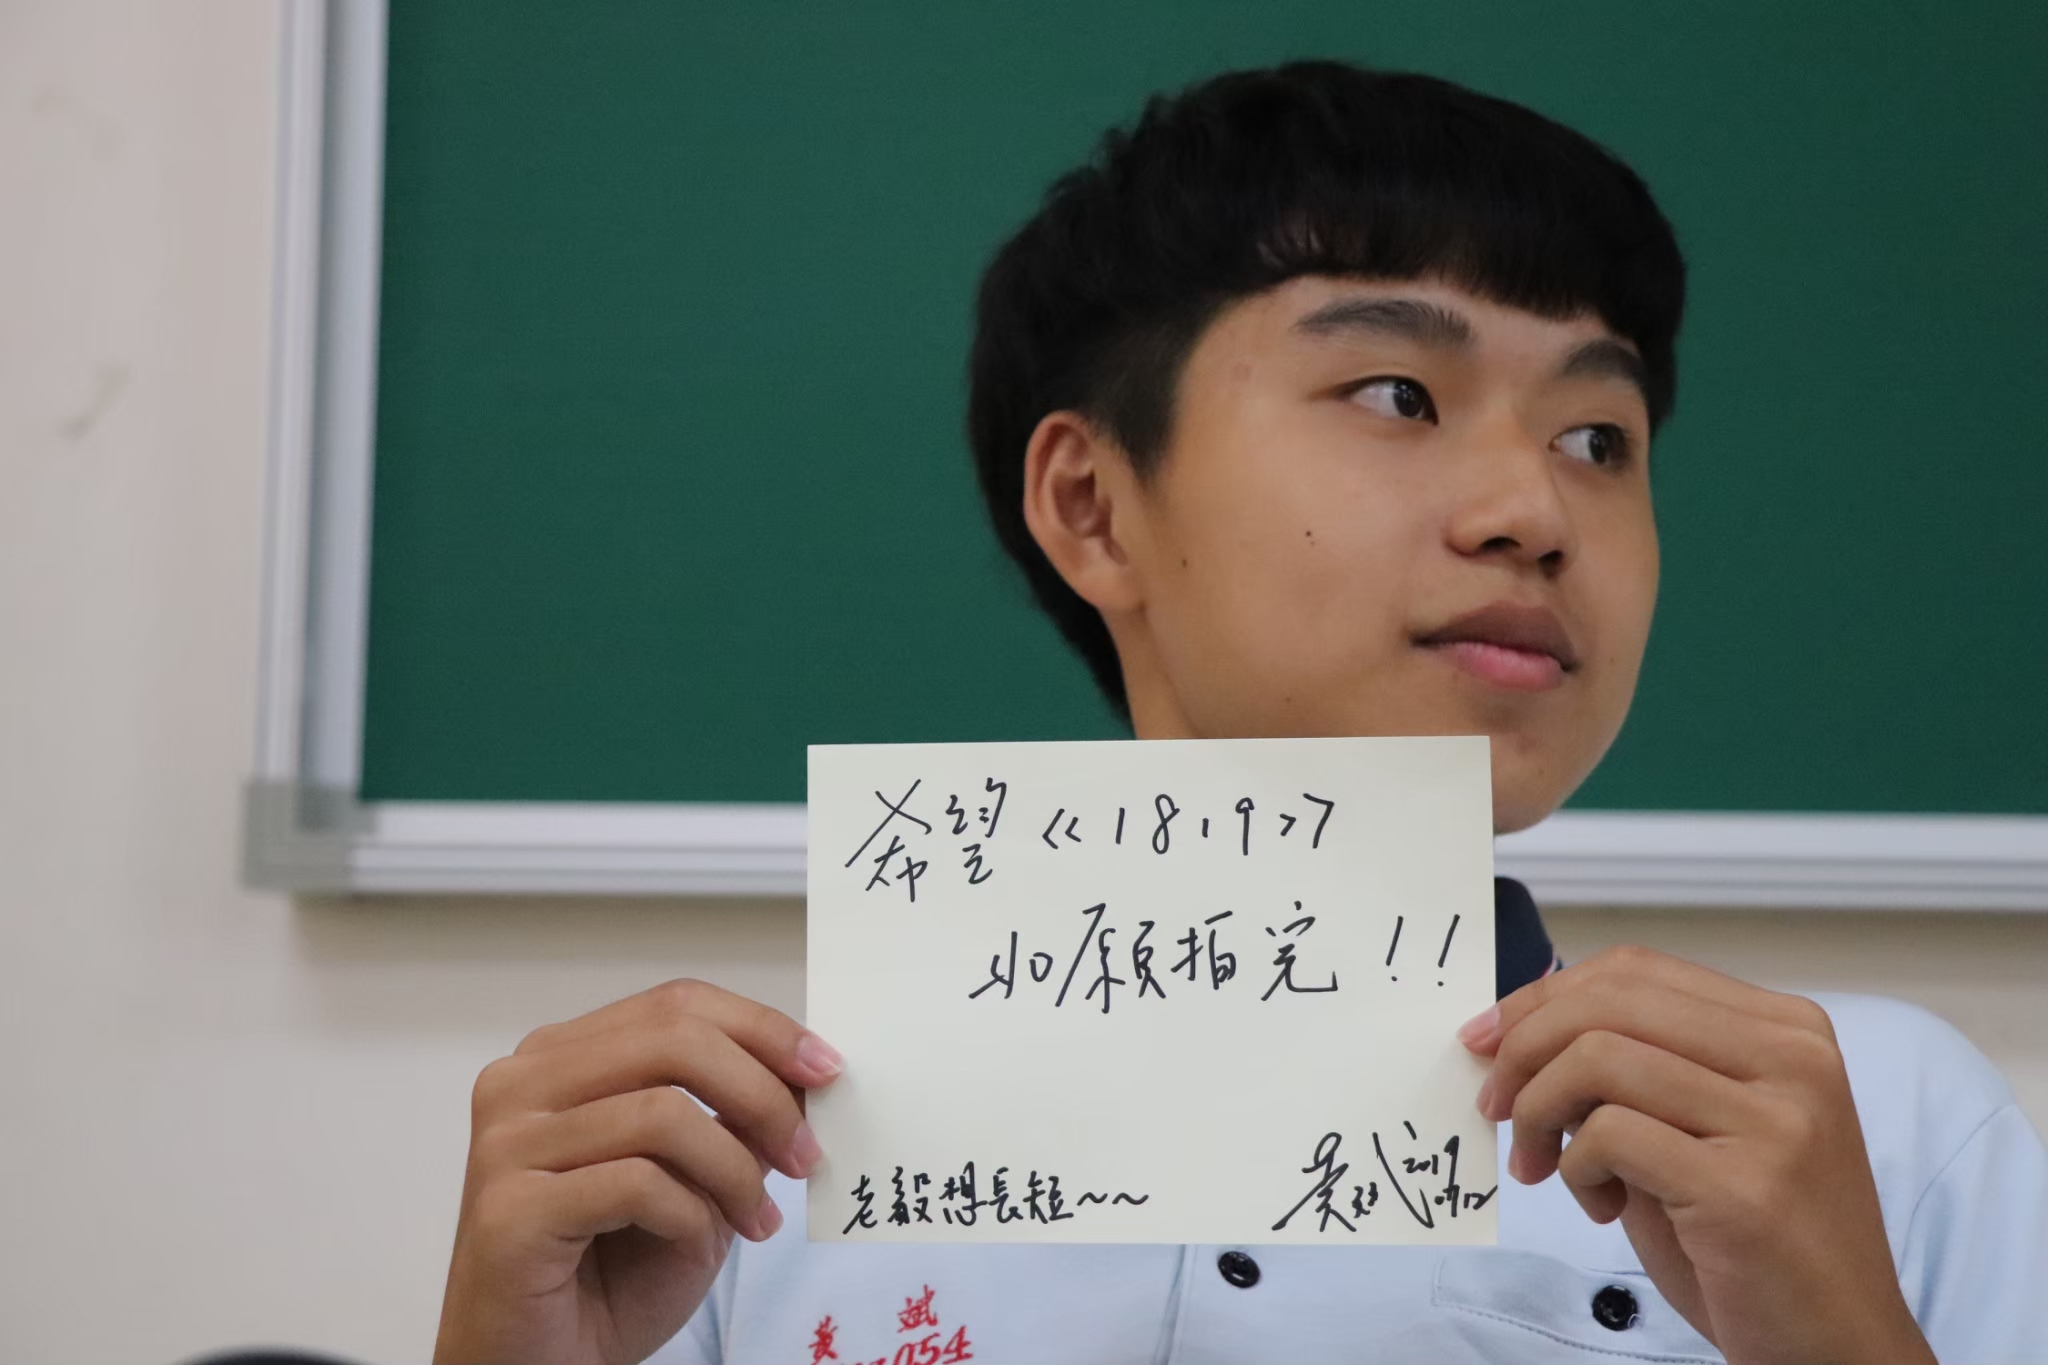 希望《18,9》
如願拍完！！
老毅想長短~~
黃斌 2019
黃 斌
054